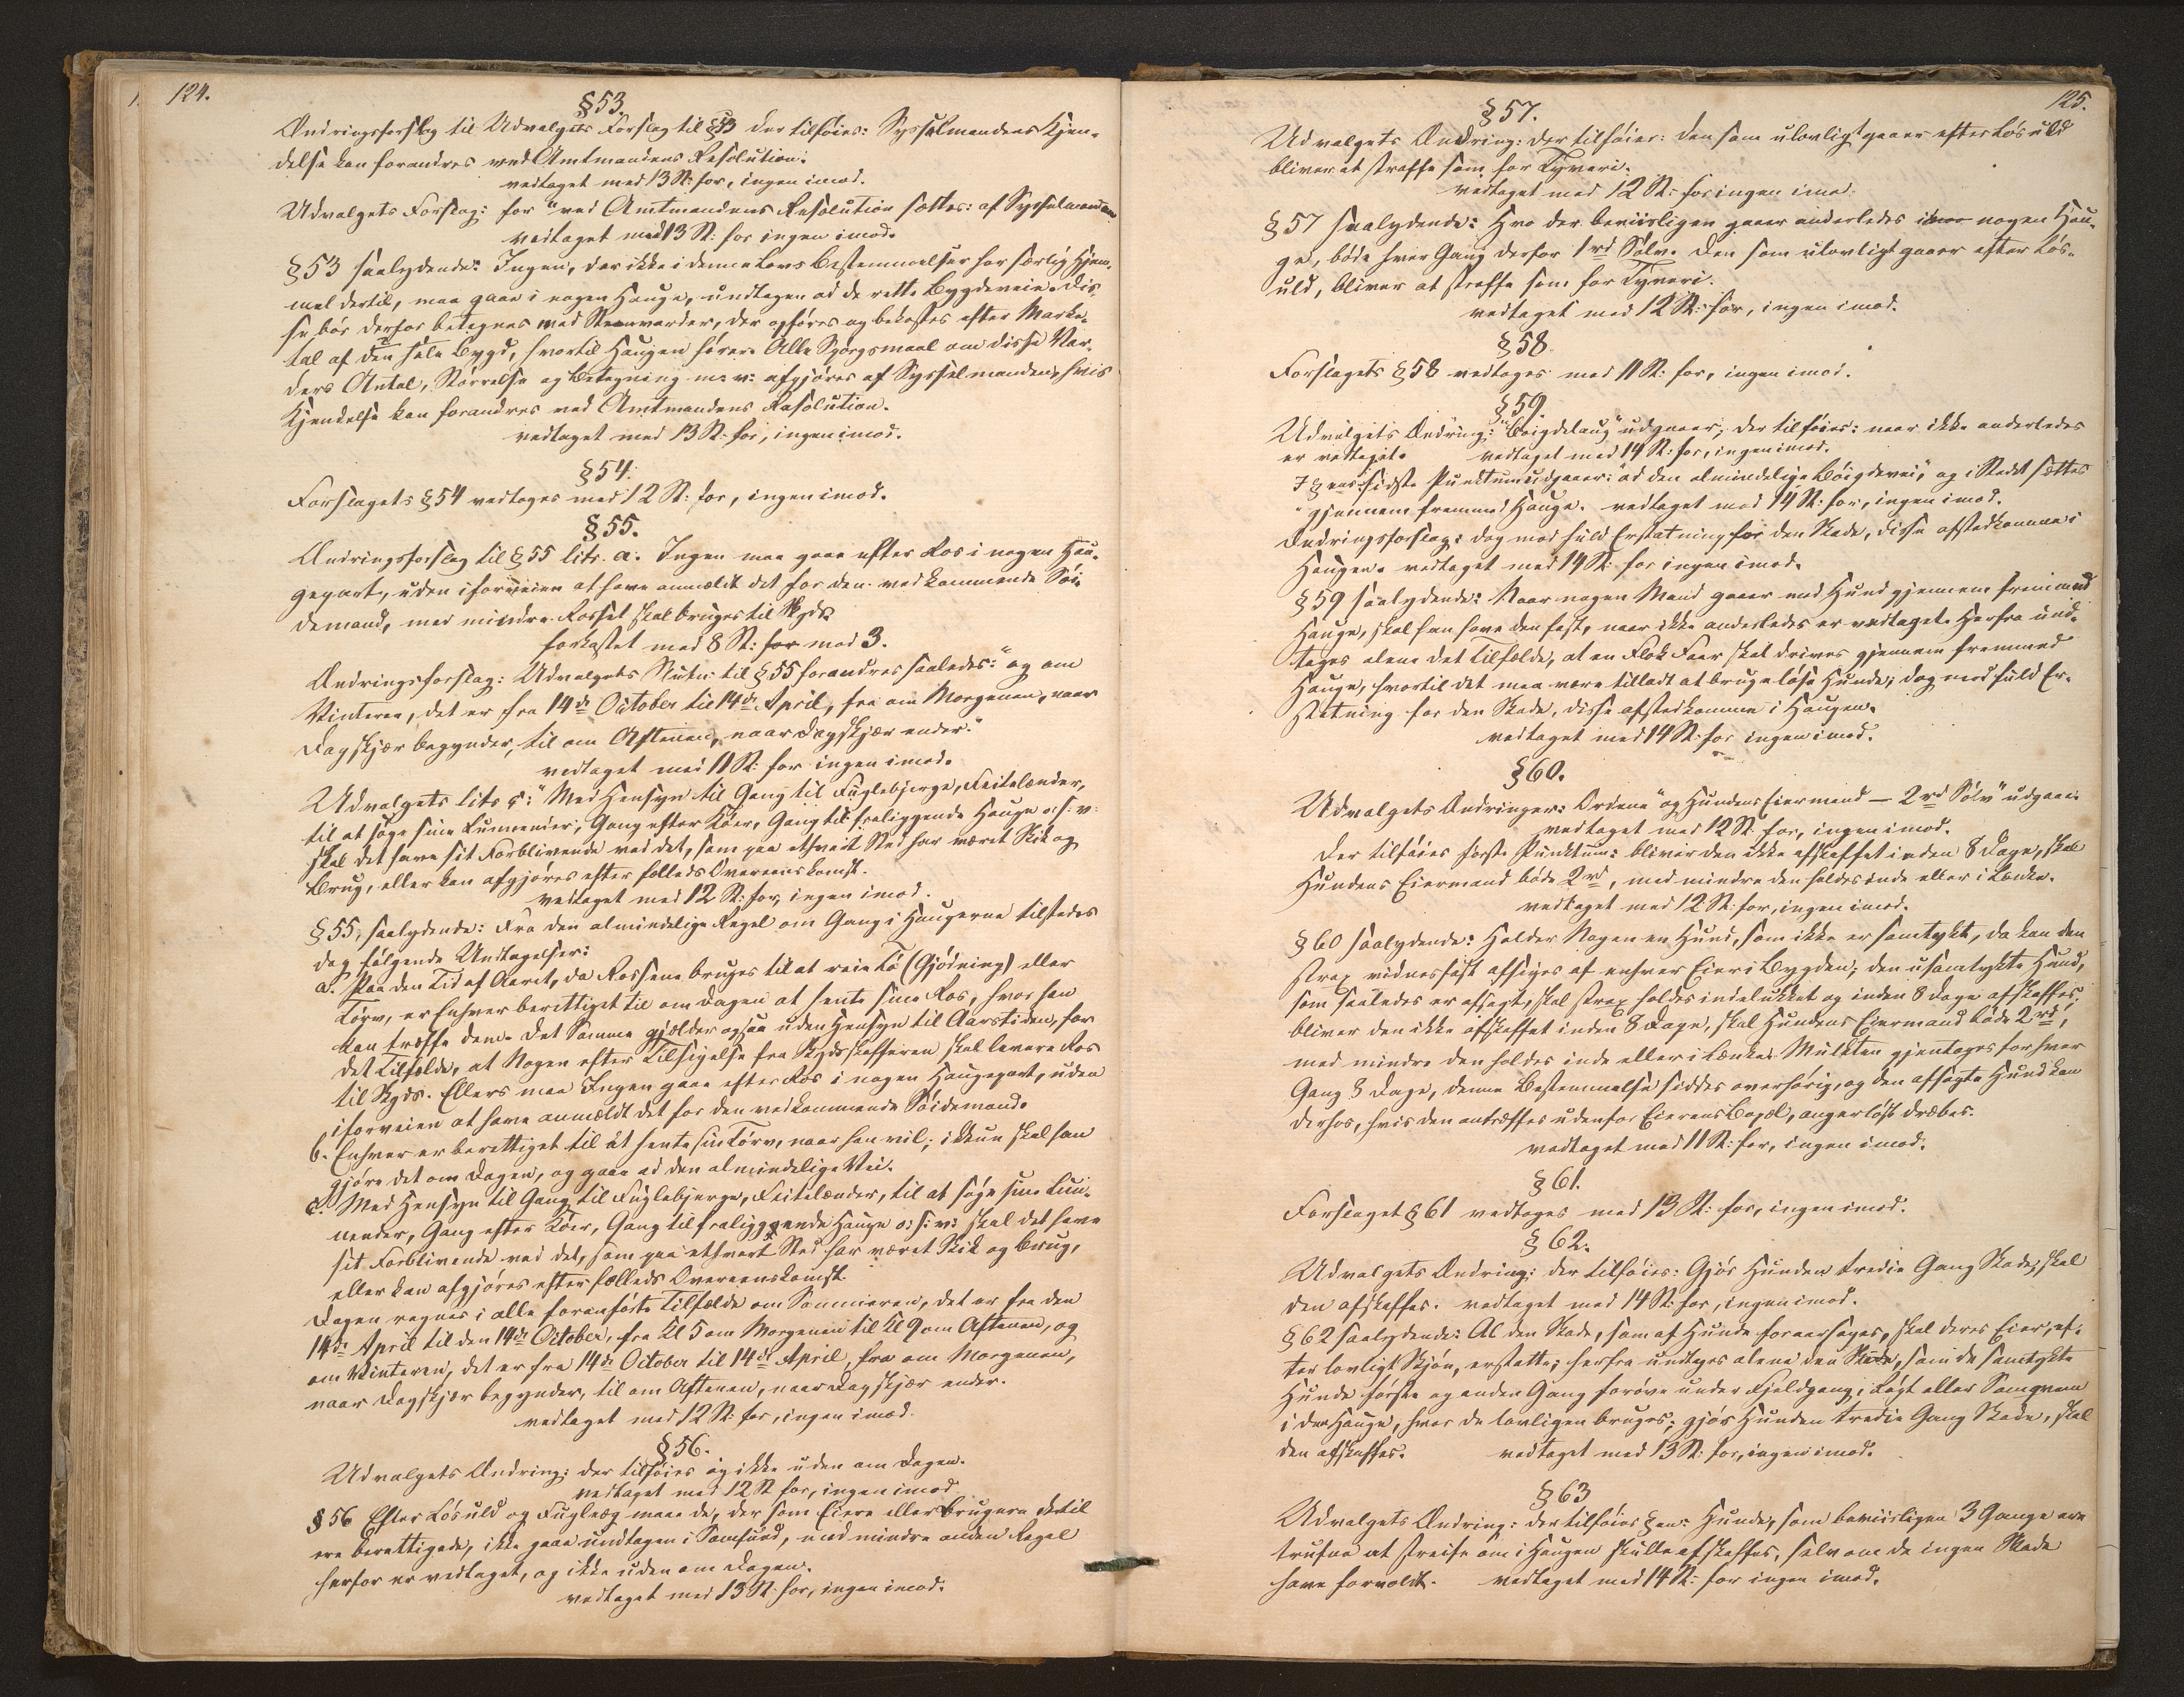 124.
§53.
Ændringsforslag til Udvalgets Forslag til §53 der tilføies: Sysselmandens Kjen-
delse kan forandres ved Amtmandens Resolution.
vedtaget med 13 St: for, ingen imod.
Udvalgets Forslag: for "ved Amtmandens Resolution sættes: af Sysselmanden
vedtaget med 13 St: for ingen imod.
§53 saalydende: Ingen, der ikke i denne Lovs Bestemmelser har særlig Hjem-
mel dertil, maa gaae i nogen Hauge, undtagen ad de rette Bygdeveie. Dis-
se bør derfor betegnes med Steenvarder, der opføres og bekostes efter Marke-
tal af den hele Bygd, hvortil Haugen hører. Alle Spørgsmaal om disse Var-
ders Antal, Størrelse og Betegning m: v: afgjøres af Sysselmanden, hvis
Kjendelse kan forandres ved Amtmandens Resolution.
vedtaget med 13 St: for, ingen imod.
§54.
Forslagets §54 vedtoges med 12 St: for, ingen imod.
§55.
Ændringsforslag til §55 litr. a. Ingen maa gaae efter Ros i nogen Hau-
gepart, uden iforveien at have anmeldt det for den vedkommende Søi-
demand, med mindre Rosset skal bruges til Skyds.
forkastet med 8 St: for mod 3.
Ændringsforslag: Udvalgets Slutn: til §55 forandres saaledes: "og om
Vinteren, det er fra 14de October til 14de April, fra om Morgenen, naar
Dagskjær begynder, til om Aftenen, naar Dagskjær ender."
vedtaget med 11 St: for ingen imod.
Udvalgets litr c: "Med Hensyn til Gang til Fuglebjerge, Feitelænder,
til at søge sine Lunnender, Gang efter Køer, Gang til fraliggende Hauge o: s: v:
skal det have sit Forblivende ved det, som paa ethvert Sted har været Skik og
Brug, eller kan afgjøres efter fælleds Overeenskomst.
vedtaget med 12 St: for, ingen imod.
§55, saalydende: Fra den almindelige Regel om Gang i Haugerne tilstedes
dog følgende Undtagelser:
a. Paa den Tid af Aaret, da Rossene bruges til at reie Tø (Gjødning) eller
Tørv, er Enhver berettiget til om Dagen at hente sine Ros, hvor han
kan træffe dem. Det Samme gjælder ogsaa uden Hensyn til Aarstiden, for
det Tilfælde, at Nogen efter Tilsigelse fra Skydsskafferen skal levere Ros
til Skyds. Ellers maa Ingen gaae efter Ros i nogen Haugepart, uden
iforveien at have anmeldt det for den vedkommende Søidemand.
b. Enhver er berettiget til at hente sin Tørv, naar han vil; ikkun skal han
gjøre det om Dagen, og gaae ad den almindelige Vei.
c. Med Hensyn til Gang til Fuglebjerge, Feitelænder, til at søge sine Lun-
nender, Gang efter Køer, Gang til fraliggende Hauge o: s: v: skal det have
sit Forblivende ved det, som paa ethvert Sted har været Skik og Brug,
eller kan afgjøres efter fælleds Overeenskomst.
Dagen regnes i alle foranførte Tilfælde om Sommeren, det er fra den
14de April til den 14de October, fra Kl 5 om Morgenen til Kl 9 om Aftenen, og
om Vinteren, det er fra 14de October til 14de April, fra om Morgenen,
naar Dagskjær begynder, til om Aftenen, naar Dagskjær ender.
vedtaget med 12 St: for, ingen imod.
§56.
Udvalgets Ændring: der tilføies og ikke uden om Dagen.
vedtaget med 12 St for, ingen imod.
§56 Efter Løsuld og Fuglæg maae de, der som Eiere eller Brugere dertil
ere berettigede, ikke gaae undtagen i Samfund, med mindre anden Regel
herfor er vedtaget, og ikke uden om Dagen.
vedtaget med 13 St: for, ingen imod.
125.
§57.
Udvalgets Ændring: der tilføies: den som ulovligt gaaer efter Løsuld
bliver at straffe som for Tyveri.
vedtaget med 12 St: for ingen imod.
§57 saalydende: Hvo der beviisligen gaaer anderledes i nogen Hau-
ge, bøde hver Gang derfor 1 rd Sølv. Den som ulovligt gaaer efter Løs-
uld, bliver at straffe som for Tyveri.
vedtaget med 12 St: for, ingen imod.
§58.
Forslagets §58 vedtoges med 11 St: for, ingen imod.
§59.
Udvalgets Ændring: "Bøigdelaug" udgaaer, der tilføies: naar ikke anderledes
er vedtaget. vedtaget med 14 St: for, ingen imod.
I §ens sidste Punktum udgaaer: "ad den almindelige Bøigdevei", og i Stedet sættes
"gjennem fremmed Hauge. vedtaget med 14 St: for, ingen imod.
Ændringsforslag: dog mod fuld Erstatning for den Skade, disse afstedkomme i
Haugen. vedtaget med 14 St: for ingen imod.
§59 saalydende: Naar nogen Mand gaaer med Hund gjennem fremmed
Hauge, skal han have den fast, naar ikke anderledes er vedtaget. Herfra und-
tages alene det Tilfælde, at en Flok Faar skal drives gjennem fremmed
Hauge, hvortil det maa være tilladt at bruge løse Hunde; dog mod fuld Er-
statning for den Skade, disse afstedkomme i Haugen.
vedtaget med 14 St: for ingen imod.
§60.
Udvalgets Ændringer: Ordene "og Hundens Eiermand — 2 rd Sølv" udgaae.
vedtaget med 12 St: for, ingen imod.
Der tilføies første Punktum: bliver den ikke afskaffet inden 8 Dage, skal
Hundens Eiermand bøde 2 rd, med mindre den holdes inde eller i Lænke.
vedtaget med 12 St: for, ingen imod.
§60 saalydende: Holder Nogen en Hund, som ikke er samtykt, da kan den
strax vidnesfast afsiges af enhver Eier i Bygden; den usamtykte Hund,
som saaledes er afsagt, skal strax holdes indelukket og inden 8 Dage afskaffes;
bliver den ikke afskaffet inden 8 Dage, skal Hundens Eiermand bøde 2 rd,
med mindre den holdes inde eller i Lænke. Mulkten gjentages for hver
Gang 3 Dage, denne Bestemmelse siddes overhørig, og den afsagte Hund kan
derhos, hvis den antræffes udenfor Eierens Bopæl, angerløst dræbes.
vedtaget med 11 St: for, ingen imod.
§61.
Forslaget §61 vedtoges med 13 St: for, ingen imod.
§62.
Udvalgets Ændring: der tilføies: Gjør Hunden tredie Gang Skade, skal
den afskaffes. vedtaget med 14 St: for, ingen imod.
§62 saalydende: Al den Skade, som af Hunde foraarsages, skal deres Eier, ef-
ter lovligt Skjøn, erstatte; herfra undtages alene den Skade, som de samtykte
Hunde første og anden Gang forøve under Fjeldgang, Røgt eller Samqvem
i den Hauge, hvor de lovligen bruges; gjør Hunden tredie Gang Skade, skal
den afskaffes. vedtaget med 13 St: for, ingen imod.
§63
Udvalgets Ændring: der tilføies §en: Hunde, som beviisligen 3 Gange ere
trufne at streife om i Haugen skulle afskaffes, selv om de ingen Skade
have forvoldt. vedtaget med 14 St: for ingen imod.